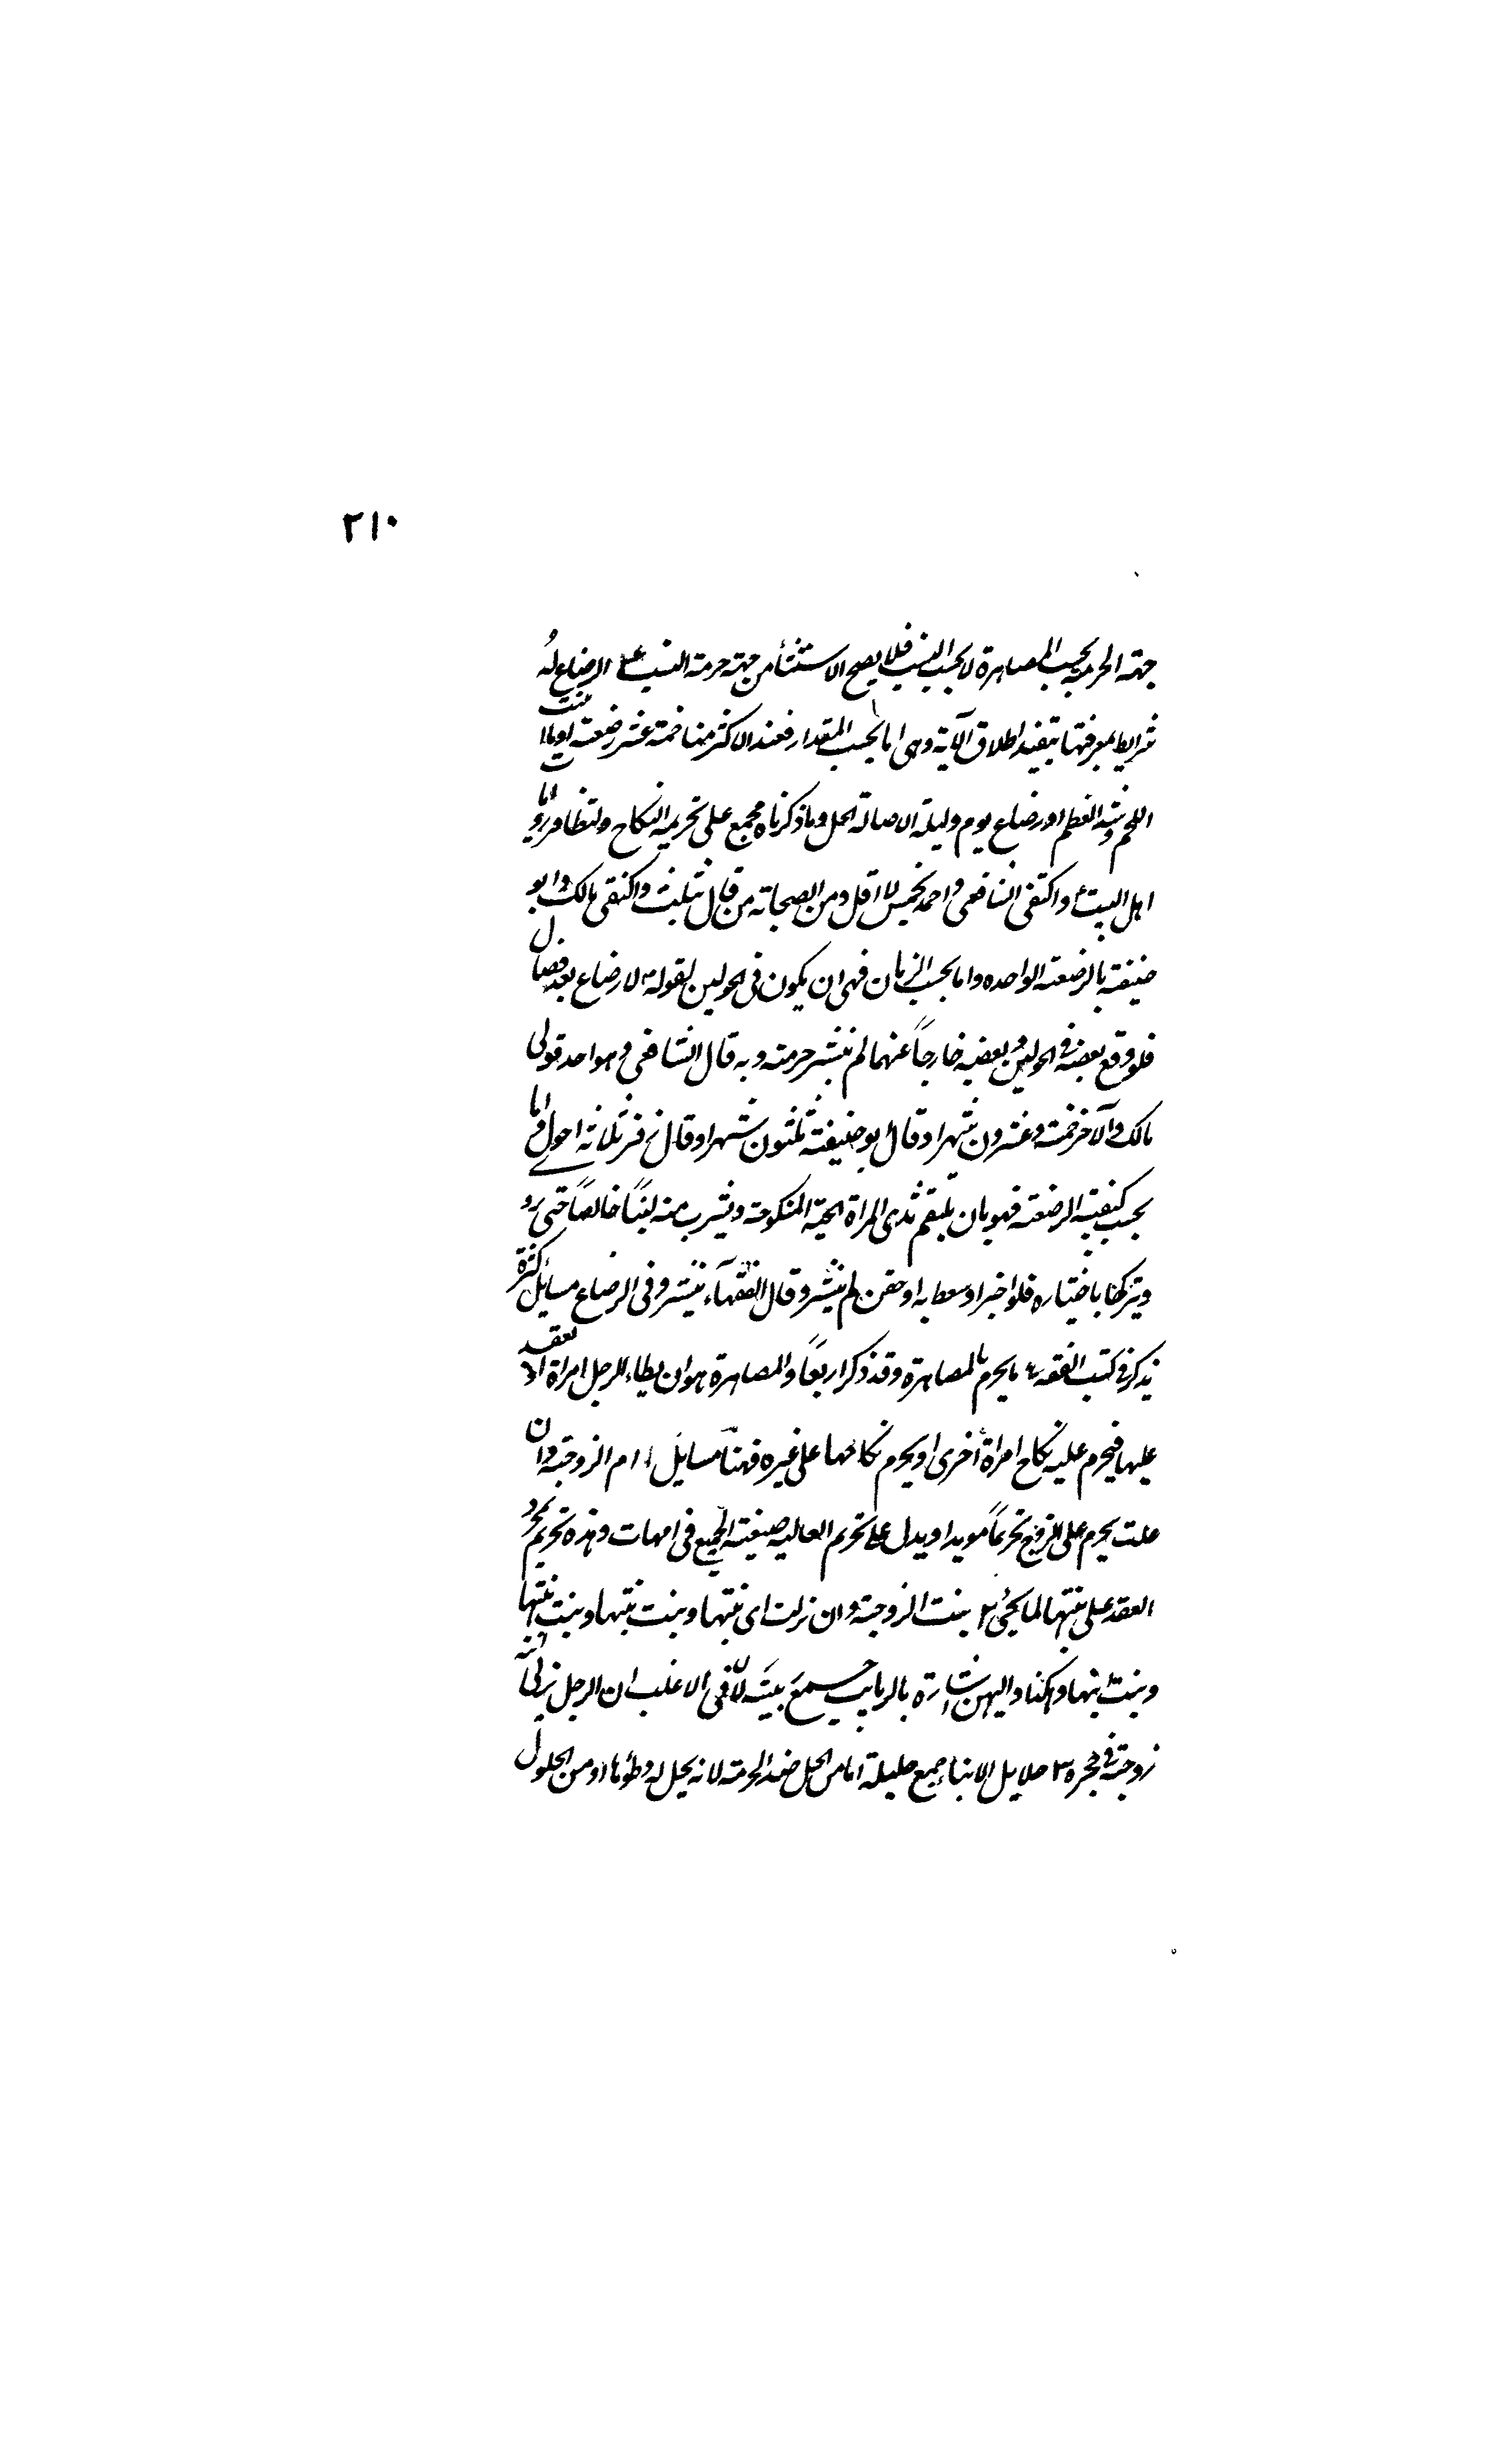 ٢١٠
جهة الحرمة بحسب المصاهرة لا بحسب النسب فلا يصح الاستثنأ من جهة حرمة النسب ٤ الرضاع له
شرايط بمعرفتها يتقيد اطلاق الآية وهى اما بحسب المقدار فعند الاكثر منا خمسة عشر رضعة او ما انبت
اللحم وشد العظم او رضاع يوم وليلة لاصالة الحل وما ذكرناه مجمع على تحريمه النكاح ولتظافر روايات
اهل البيت ع واكتفى الشافعى واحمد بخمس لا اقل ومن الصحابة من قال بثلث واكتفى مالك وابو
حنيفة بالرضعة الواحده واما بحسب الزمان فهى ان يكون فى الحولين لقوله ص لا رضاع بعد فصال
فلو وقع بعضه فى الحولين وبعضه خارجاً عنهما لم ينشر حرمة وبه قال الشافعى وهو احد قولى
مالك والآخر خمسة وعشرون شهرا وقال ابو حنيفة ثلثون شهرا وقال زفر ثلاثة احول واما
بحسب كيفية الرضعة فهو بان يلتقم ثدى المراة الحية المنكوحة ويشرب منه لبنًا خالصًا حتى يروى
ويتركها باختياره فلو اخبر او سعط به او حقن لم ينشر وقال الفقهآء ينشر وفى الرضاع مسايل كثيرة
يذكر فى كتب الفقه ما يحرم بالمصاهرة وقد ذكر اربعًا والمصاهرة هو ان يطاء الرجل امراة او يعقد
عليها فيحرم عليه نكاح امراة أخرى او يحرم نكاحها على غيره فهنا مسايل ا ام الزوجة وان
علت يحرم على الزوج تحريمًا مويدا ويدل على تحريم العاليه صيغة الجمع فى امهات وهذه تحريم بمجرد
العقد على بنتها لما يجئ ٢ بنت الزوجة وان نزلت اى بنتها وبنت بنتها وبنت ابنها
وبنت ابنها وهكذا واليهن اشارة بالربايب جمع ربيبة لأن فى الاغلب ان الرجل يربى ابنة
زوجته فى حجره ٣ حلايل الابناء جمع حليلة اما من الحل ضد الحرمة لانه يحل له وطؤها او من الحلول